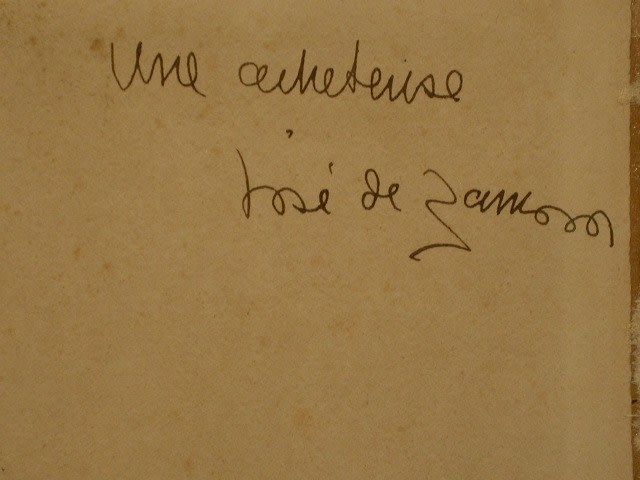 Une acheteuse
José de Zamora